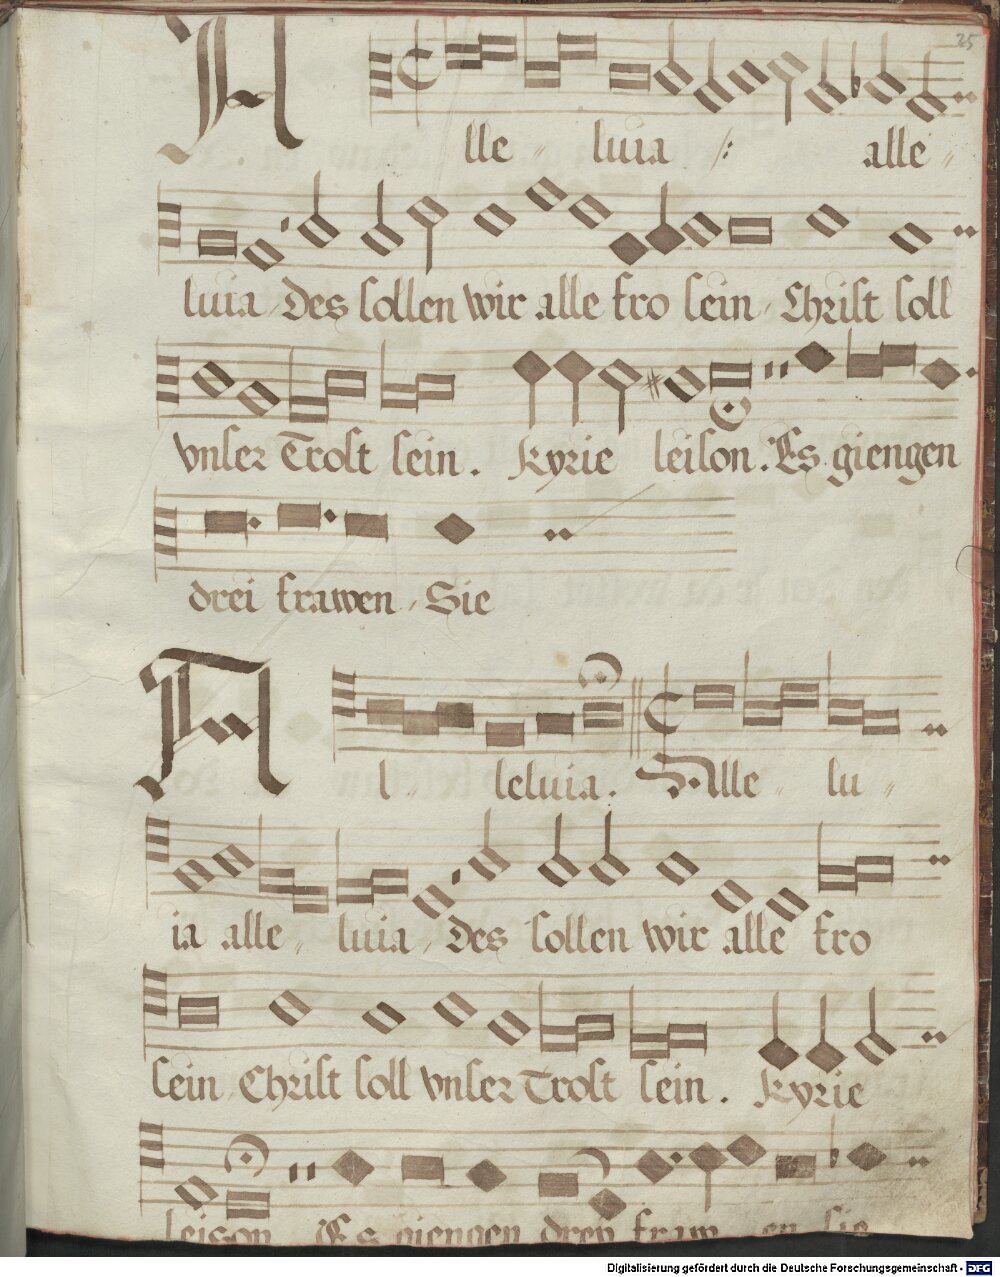 25
A lle - luia /: alle -
luia / Des sollen wir alle fro sein / Christ soll
vnser Trost sein . Kyrie leison . Es giengen
drei frawen / Sie
Al - leluia . Alle - lu -
ia alle - luia / Des sollen wir alle fro
sein / Christ soll vnser Trost sein . Kyrie
leison Es giengen drey fraw en sie
Digitalisierung gefördert durch die Deutsche Forschungsgemeinschaft - DFG